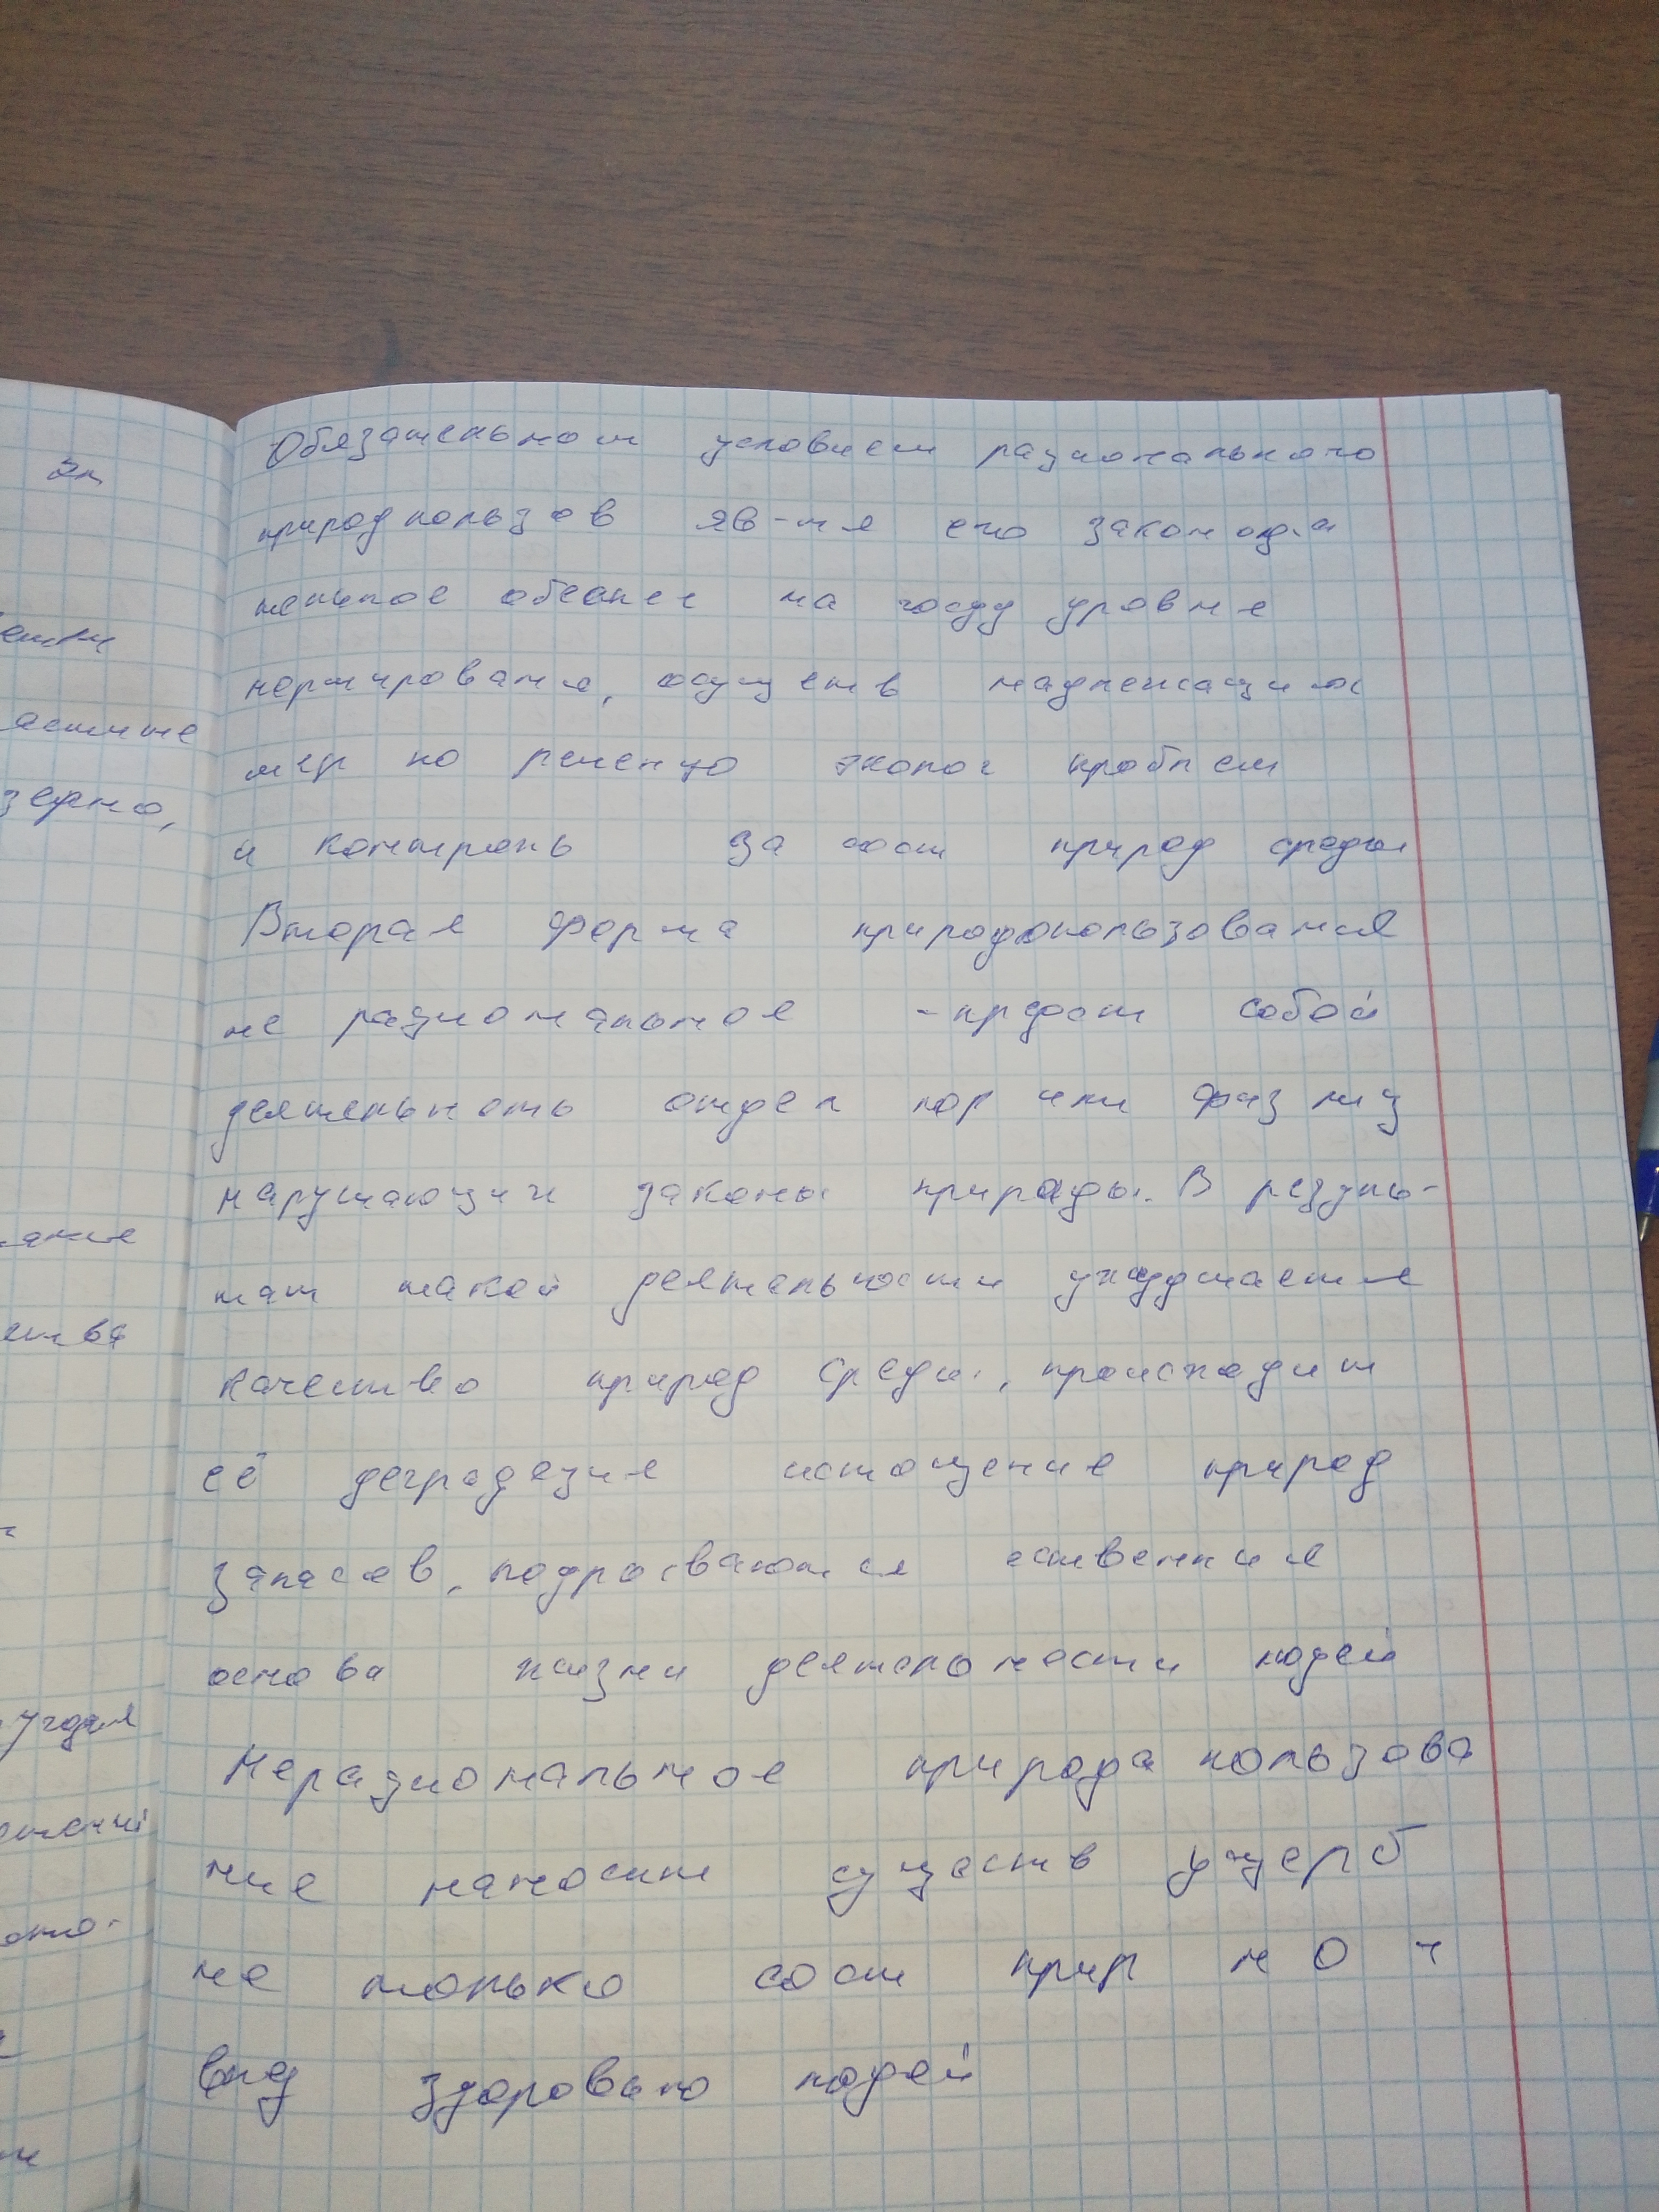 2т
Обязательном условием рационального
природпользов яв-ня его законода
тельное обеспеч на госуд уровне
нормированя, осущеста надлежащих
мер по решению эколог проблем
и контроль за сост природ среды
Вторая форма природопользования
не рациональное - предст собой
деятельность отдел юр или физ лиц
нарушающих законы природы. В резуль-
тат такой деятельности ухудшается
качество природ среды, происходит
её деградезие истощение природ
запасов, подрасваются ественния
основа жизни деятельности людей
Нерациональное природа пользова
ние наносит существ ущерб
не только сост прир н о
вид здоровью людей
зерно,
угодия